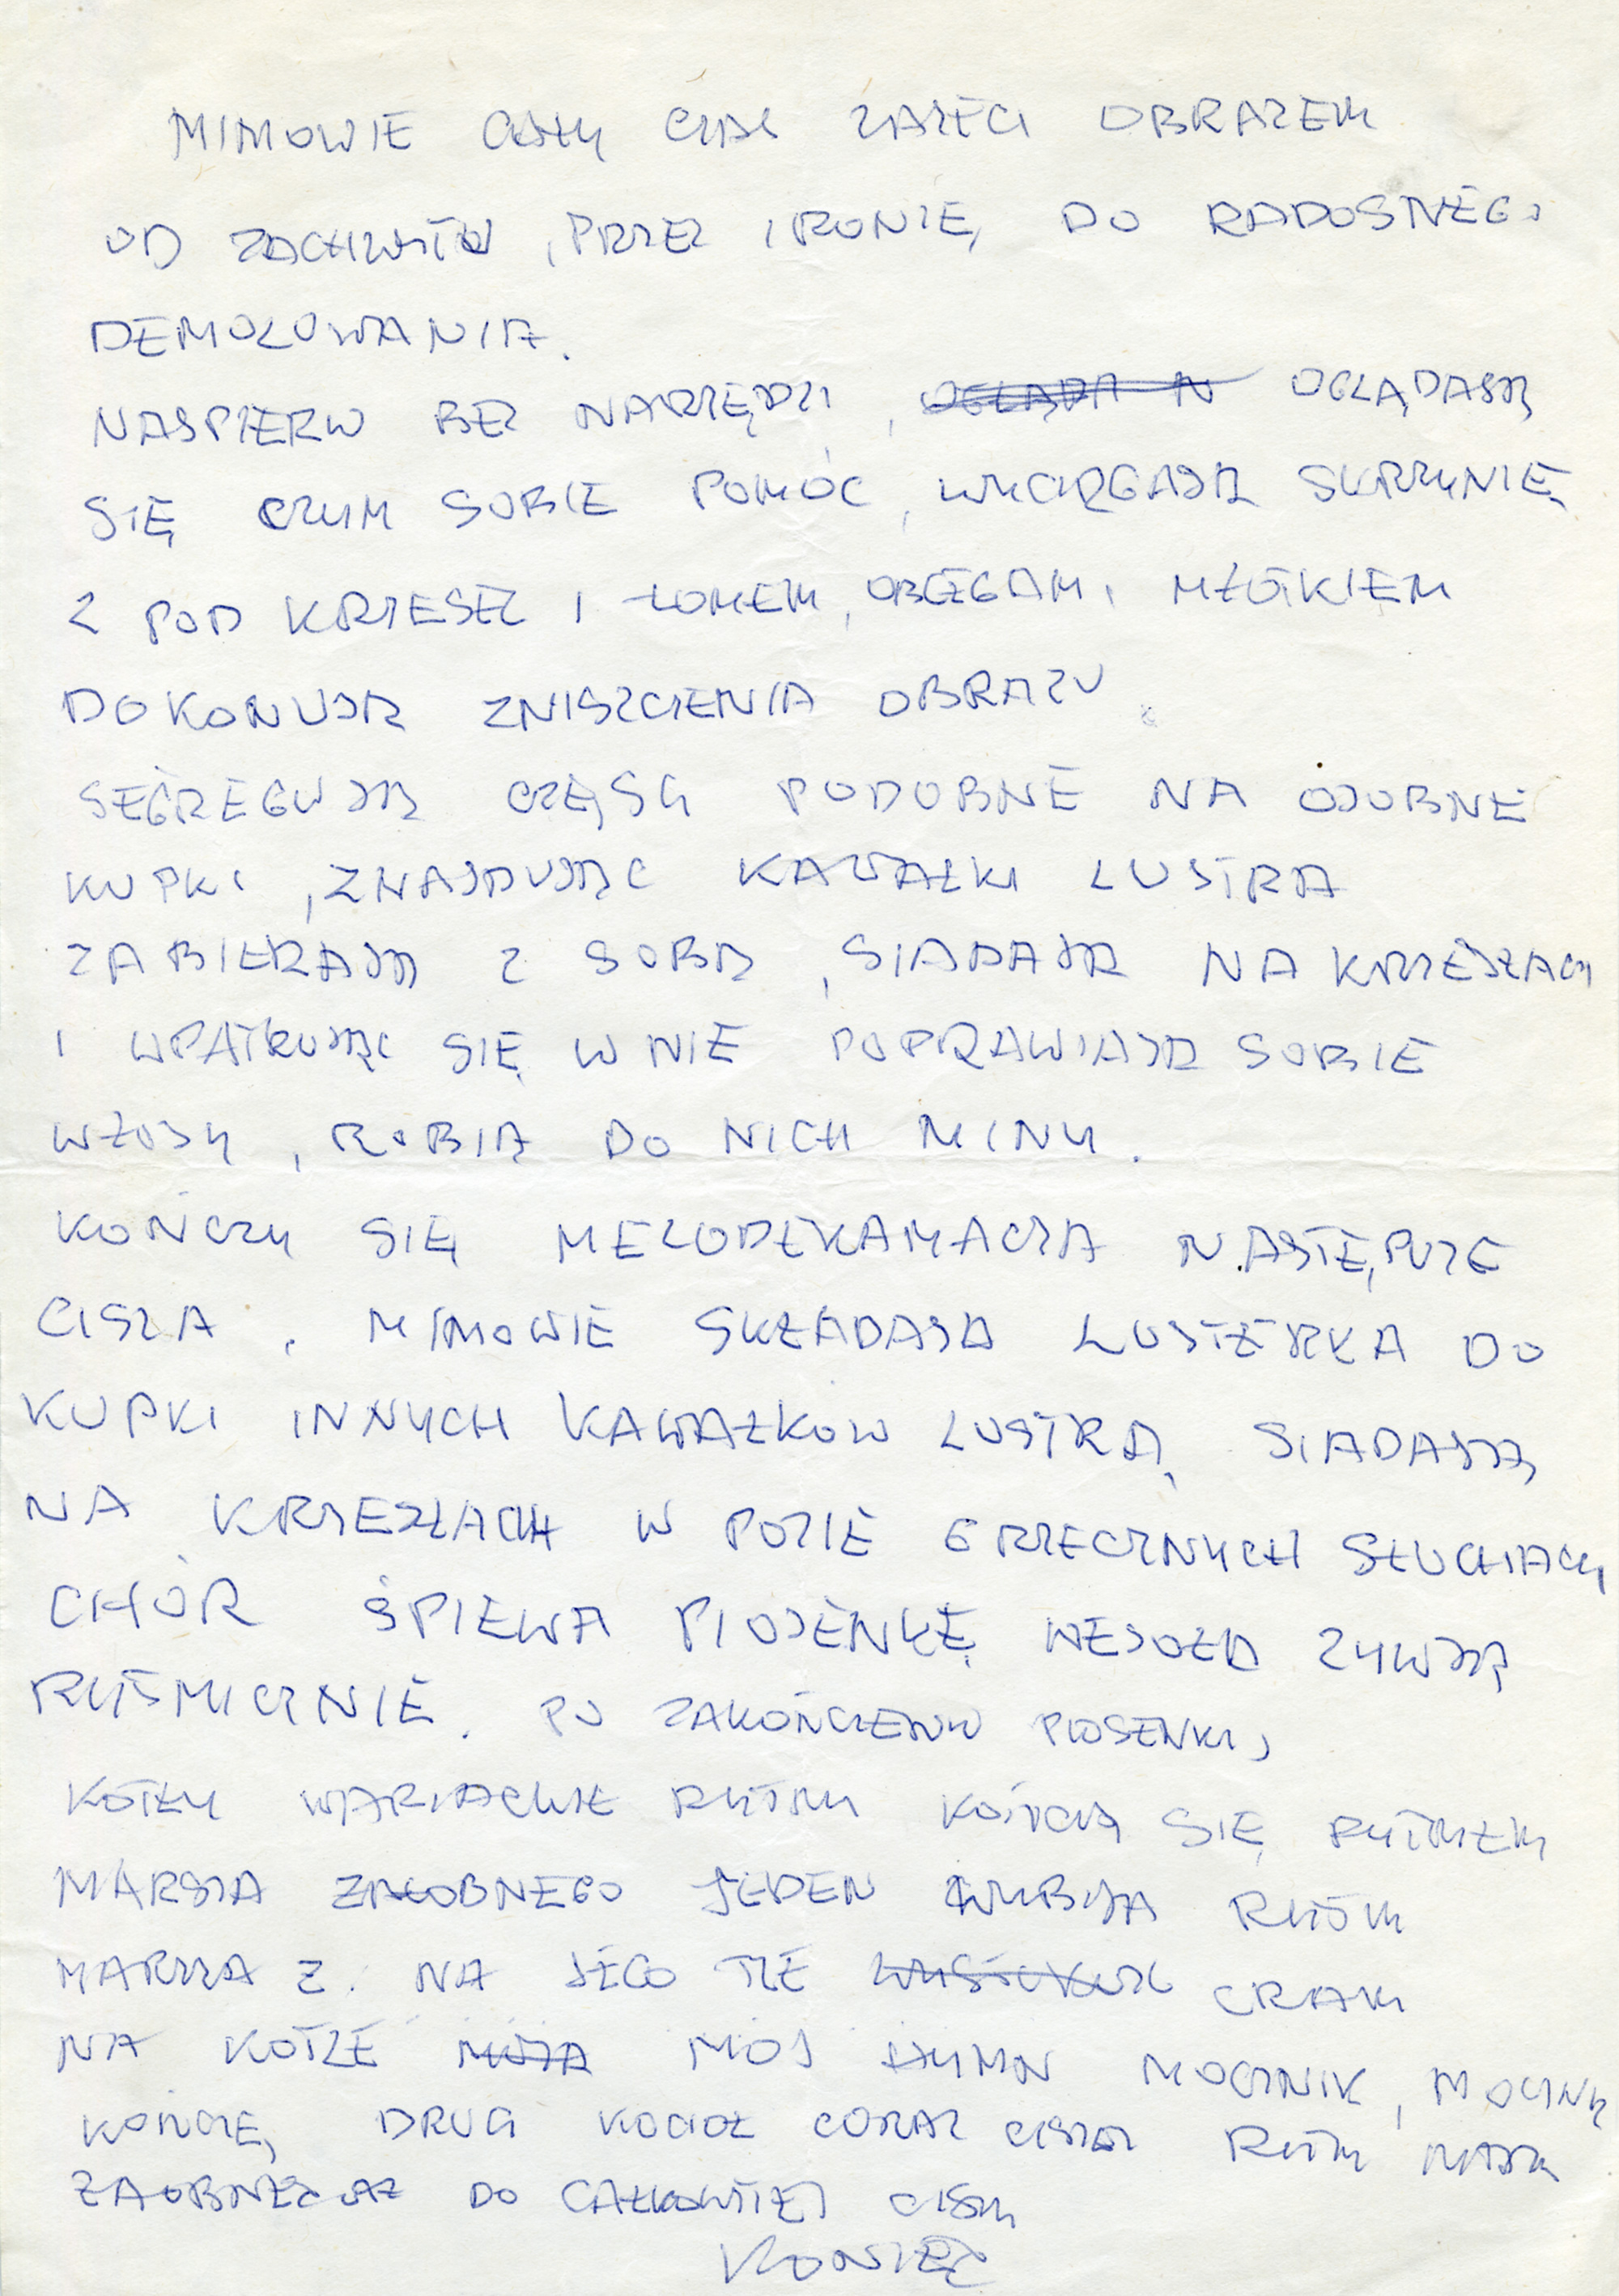 MIMOWIE CAŁY CZAS ZAJĘCI OBRAZEM
OD ZACHWYTÓW, PRZEZ IRONIE, DO RADOSNEGO
DEMOLOWANIA.
NAJPIERW BEZ NARZĘDZI, OGLĄDA N OGLĄDAJĄ
SIĘ CZYM SOBIE POMÓC, WYCIĄGAJĄ SKRZYNIĘ
Z POD KRZESEŁ I ŁOMEM, OBCĘGAMI MŁOTKIEM
DOKONUJĄ ZNISZCZENIA OBRAZU
SEGREGUJĄ CZĘŚCI PODOBNE NA OSOBNE
KUPKI, ZNAJDUJĄC KAWAŁKI LUSTRA
ZABIERAJĄ Z SOBĄ, SIADAJĄ NA KRZESŁACH
I WPATRUJĄC SIĘ W NIE POPRAWIAJĄ SOBIE
WŁOSY, ROBIĄ DO NICH MINY.
KOŃCZY SIĘ MELODEKAMACJA NASTĘPUJE
CISZA. MIMOWIE SKŁADAJĄ LUSTERKA DO
KUPKI INNYCH KAWAŁKÓW LUSTRA, SIADAJĄ
NA KRZESŁACH W POZIE GRZECZNYCH SŁUCHACZY
CHÓR ŚPIEWA PIOSENKĘ WESOŁĄ ŻYWĄ
RYTMICZNIE. PO ZAKOŃCZENIU PIOSENKI,
KOTŁY WARIACKIE RYTMY KOŃCZĄ SIĘ RYTMEM
MARSZA ŻAŁOBNEGO JEDEN WYBIJA RYTM
MARSZA Ż. NA JEGO TLE GRAM
NA KOTLE MOJA MÓJ HYMN MOCNIK, MOCNIK
KOŃCZĘ, DRUGI KOCIOŁ CORAZ CISZEJ RYTM MARSZA
ŻAOBNEGO AŻ DO CAŁKOWITEJ CISZY
KONIEC